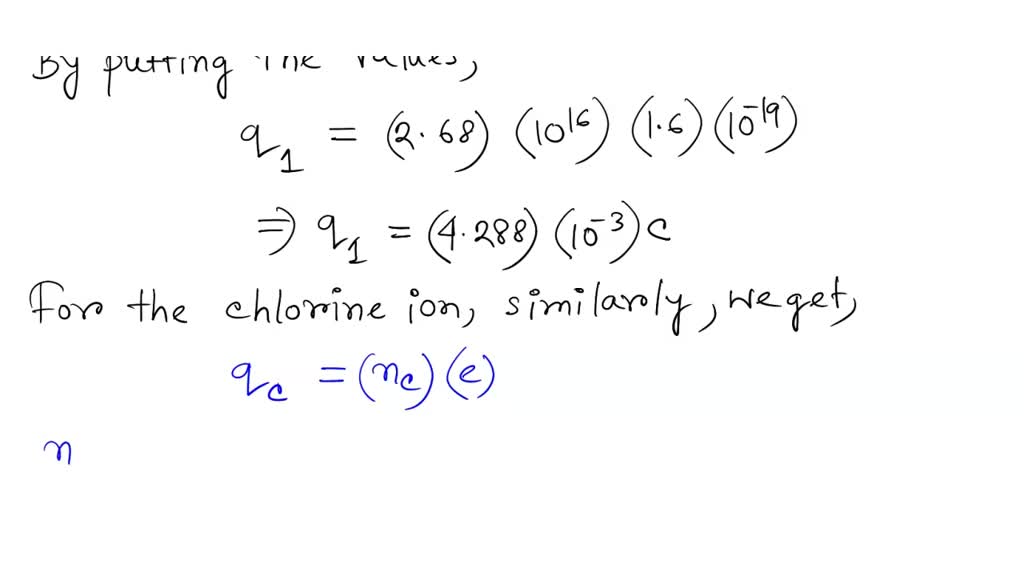 By putting the values,
q₁ = (2.68) (10¹⁶) (1.6) (10⁻¹⁹)
⇒ q₁ = (4.288) (10⁻³) C
For the chlorine ion, similarly, we get,
q_c = (n_c) (e)
n